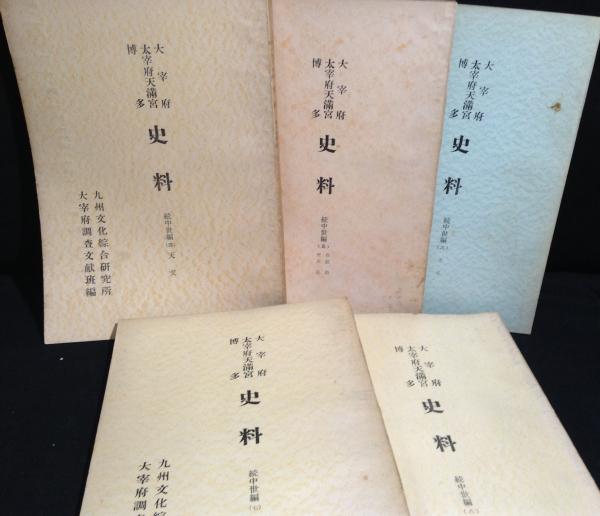 大宰府
太宰府天満宮
博多
史料
続中世編
天文
九州文化綜合研究所
大宰府調査文献班編
大宰府
太宰府天満宮
博多
史料
続中世編
大宰府
太宰府天満宮
博多
史料
続中世編
大宰府
太宰府天満宮
博多
史料
続中世編(七)
九州文化
大宰府調
大宰府
太宰府天満宮
博多
史料
続中世編(八)